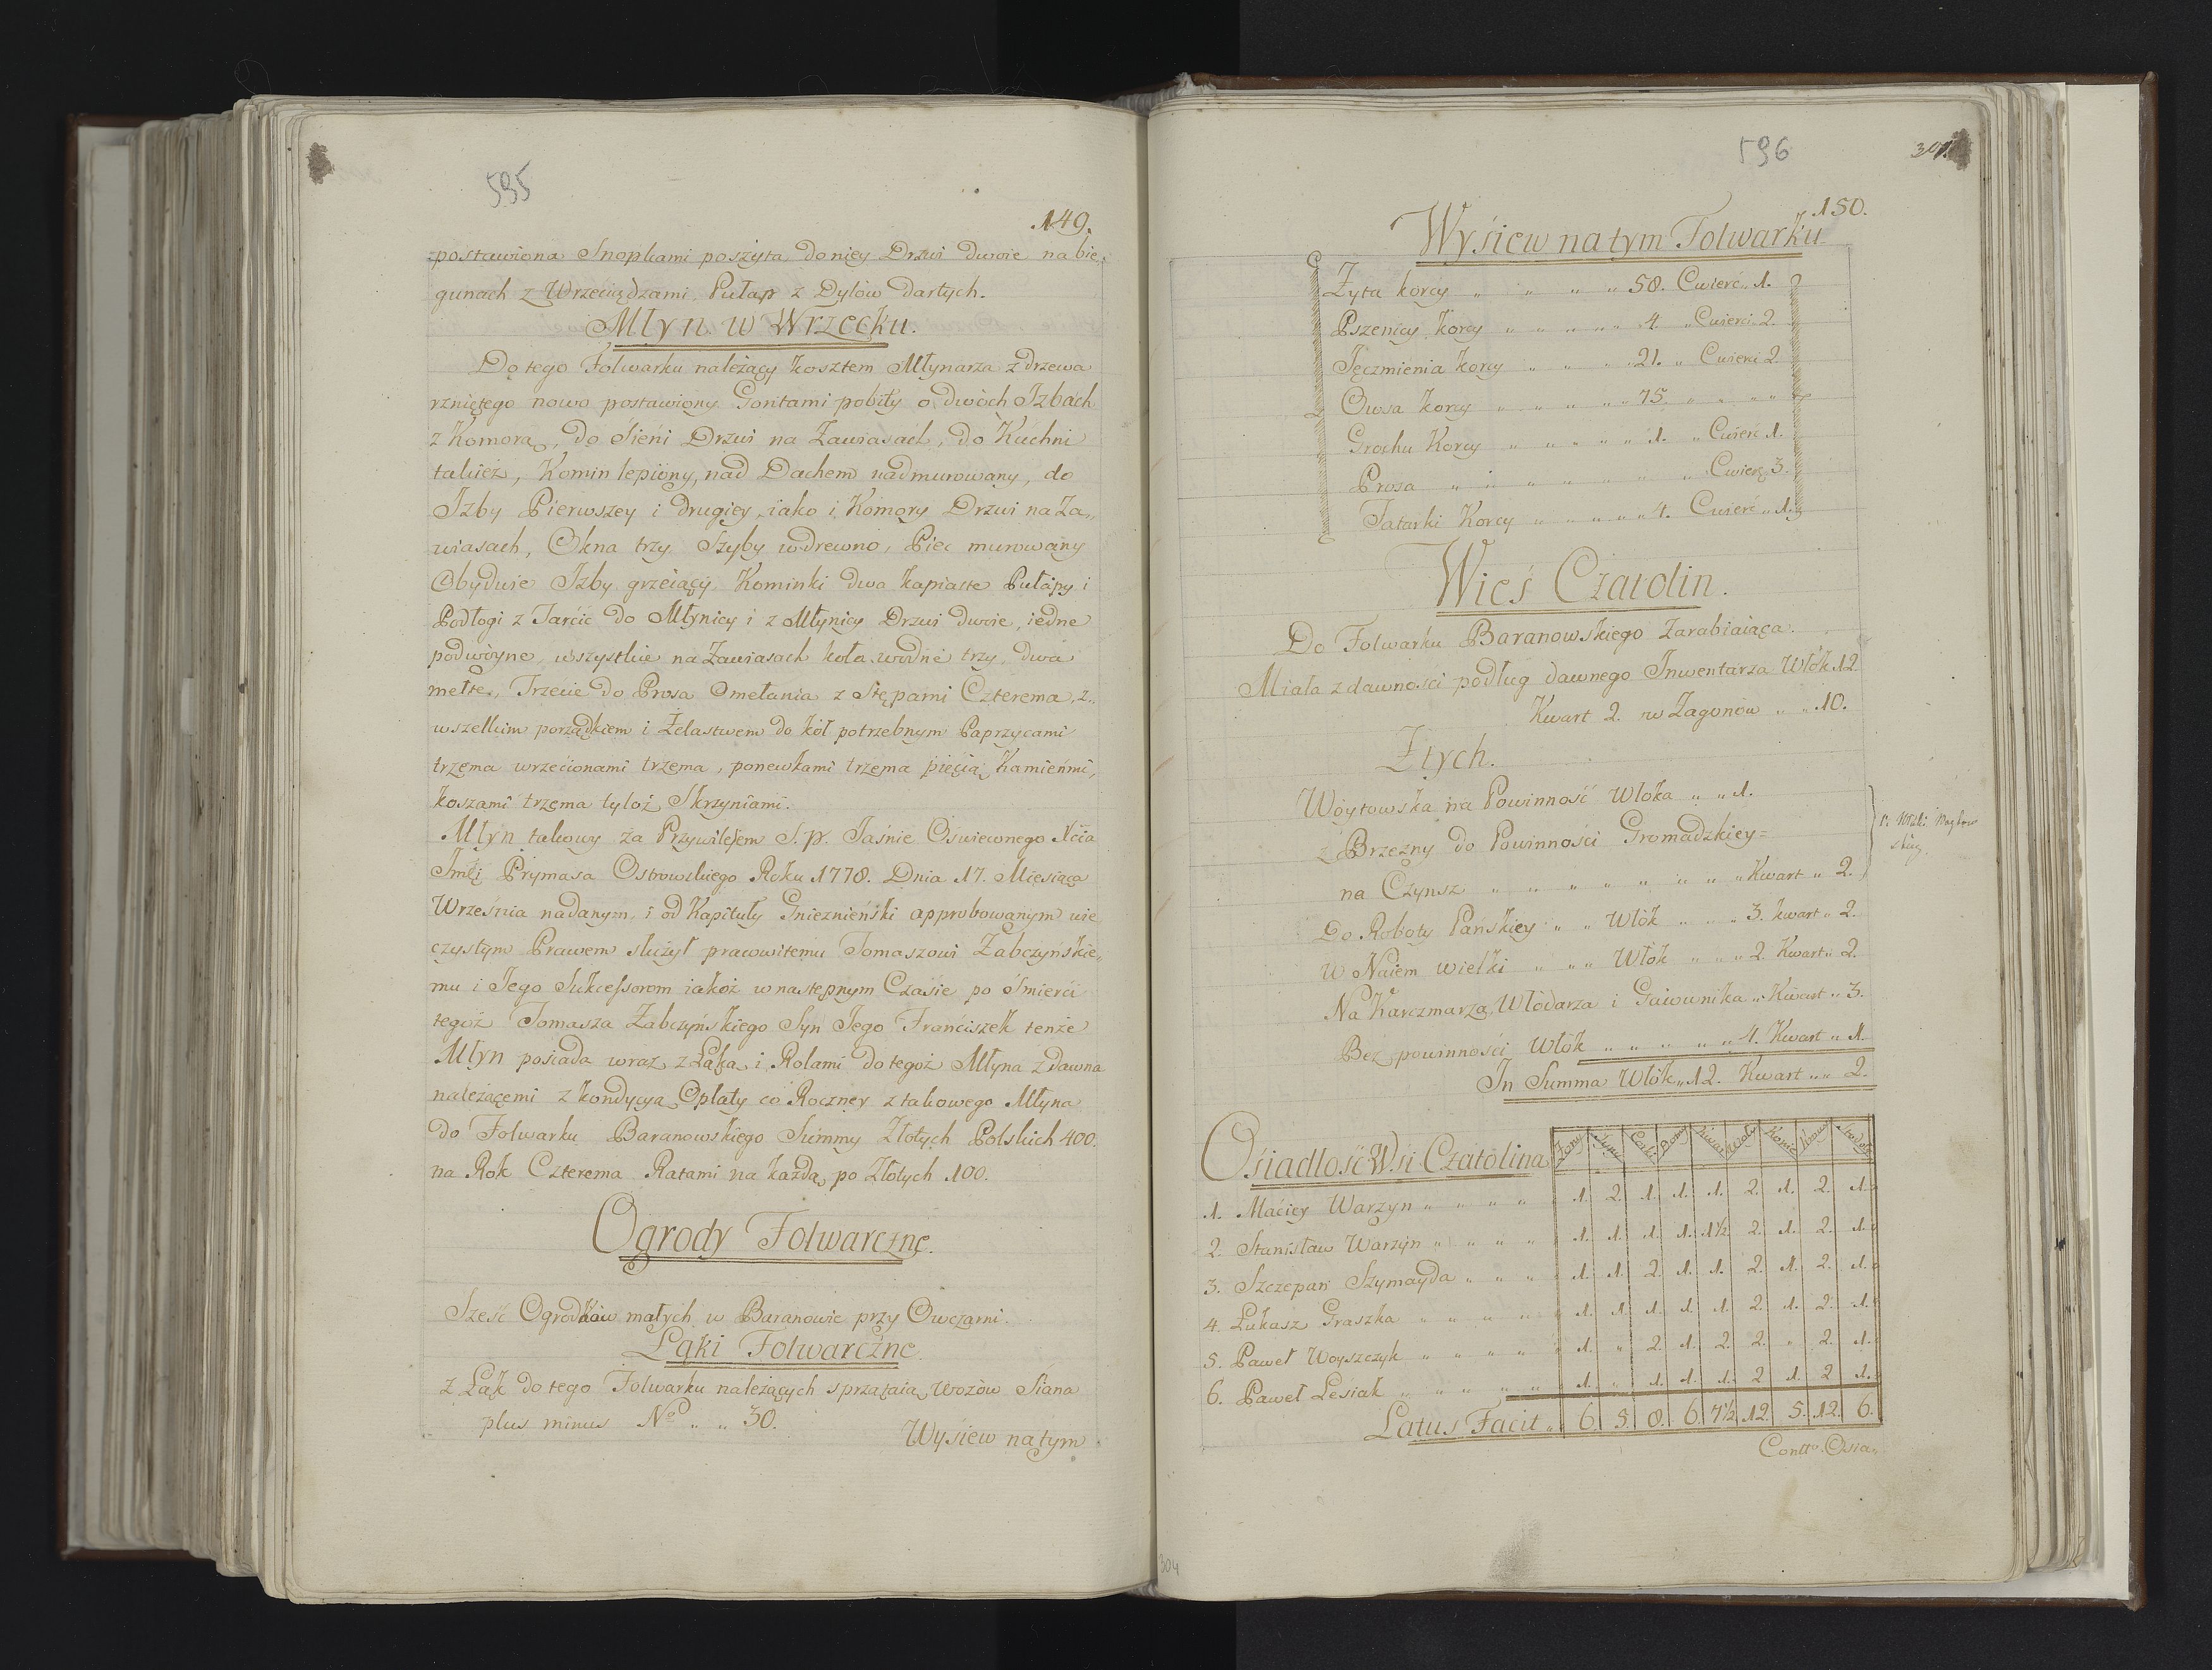 595
149.
postawiona Snopkami poszyta do niey Drzwi dwoie na bie„
gunach z Wrzeciądzami Pułap z Dylów dartych.
Młyn w Wrzecku.
Do tego Folwarku należący kosztem Młynarza z drzewa
rzniętego nowo postawiony Gontami pobity o dwóch Izbach
z Komorą, do Sieni Drzwi na Zawiasach, do Kuchni
takież, Komin lepiony, nad Dachem nadmurowany, do
Izby Pierwszey i drugiey iako i Komory Drzwi na Za„
wiasach, Okna trzy Szyby w drewno, Piec murowany
Obydwie Izby grzeiący Kominki dwa kapiaste Pułapy i
Podłogi z Tarcic do Młynicy i z Młynicy Drzwi dwoie, iedne
podwóyne, wszystkie na Zawiasach koła wodne trzy, dwa
mełte, Trzecie do Prosa Omełania z Stęparni Czterema, z„
wszelkim porządkiem i Żelastwem do kół potrzebnym Paprzycami
trzema wrzecionami trzema, ponewkami trzema pięcią Kamieńmi,
koszami trzema tyloż Skrzyniami.
Młyn takowy za Przywilejem S. p. Jaśnie Oświeconego Xcia
Jmći Prymasa Ostrowskiego Roku 1778. Dnia 17. Miesiąca
Września nadanym, i od Kapituły Gnieznieński approbowanym wie
czystym Prawem służył pracowitemu Tomaszowi Zabczyńskie„
mu i Jego Sukcessorom iakoż w następnym Czasie po śmierci
tegoż Tomasza Zabczyńskiego Syn Jego Franciszek tenże
Młyn posiada wraz z Łąką i Rolami do tegoż Młyna zdawna
należącemi z kondycyą Opłaty co Roczney z takowego Młyna
do Folwarku Baranowskiego Summy Złotych Polskich 400.
na Rok Czterema Ratami na każdą po Złotych 100.
Ogrody Folwarczne.
Sześć Ogrodków małych w Baranowie przy Owczarni.
Łąki Folwarczne.
z Łąk do tego Folwarku należących sprzątaią Wozów Siana
plus minus No „ „ 30.
Wysiew na tym
596
301.
150.
Wysiew na tym Folwarku
Żyta korcy „ „ „ „ 58. Cwierć „ 1.
Pszenicy korcy „ „ „ „ „ 4. „ Cwierci 2.
Jęczmienia korcy „ „ „ 21. „ Cwierci 2
Owsa korcy „ „ „ „ „ 75. „ „ „ „
Grochu Korcy „ „ „ „ „ 1. „ Cwierć 1.
Prosa „ „ „ „ „ „ „ „ Cwierci 3.
Tatarki Korcy „ „ „ „ „ 4. Cwierć „ 1.
Wieś Czatolin.
Do Folwarku Baranowskiego Zarabiaiąca.
Miała z dawności podług dawnego Inwentarza Włók 12.
Kwart 2. w Zagonow „ „ 10.
Z tych.
Wóytowska na Powinność Włoka „ „ 1.
z Brzezny do Powinności Gromadzkiey=
na Czynsz „ „ „ „ „ „ „ „ Kwart „ 2.
Do Roboty Pańskiey „ „ Włók „ „ „ 3. kwart „ 2.
W Naiem wielki „ „ „ Włók „ „ „ 2 Kwart „ 2.
Na Karczmarza, Włodarza i Gaiwunika „ Kwart „ 3.
Bez powinności Włók „ „ „ „ „ 4. Kwart „ 1.
In Summa Włók „ 12. Kwart „ „ 2.
Osiadłość Wsi Czatolina Żony Syny Córki
1. Maciey Warzyn „ „ „ „ 1. 2. 1. 1. 1. 2. 1. 2. 1.
2. Stanisław Warzyn „ „ „ „ 1. 1. 1. 1. 1½ 2. 1. 2. 1.
3. Szczepan Szymayda „ „ „ 1. 1. 2. 1. 1. 2. 1. 2. 1.
4. Łukasz Graszka „ „ „ „ „ 1. 1. 1. 1. 1. 2. 1. 2. 1.
5. Paweł Woyszczyk „ „ „ „ „ 1. „ 2. 1. 2. 2. „ 2. 1.
6. Paweł Leśiak „ „ „ „ „ 1. „ 1. 1. 1. 2 1. 2 1.
Latus Facit „ 6. 5. 8. 6. 7½ 12. 5. 12. 6.
Contto. Osia„
304